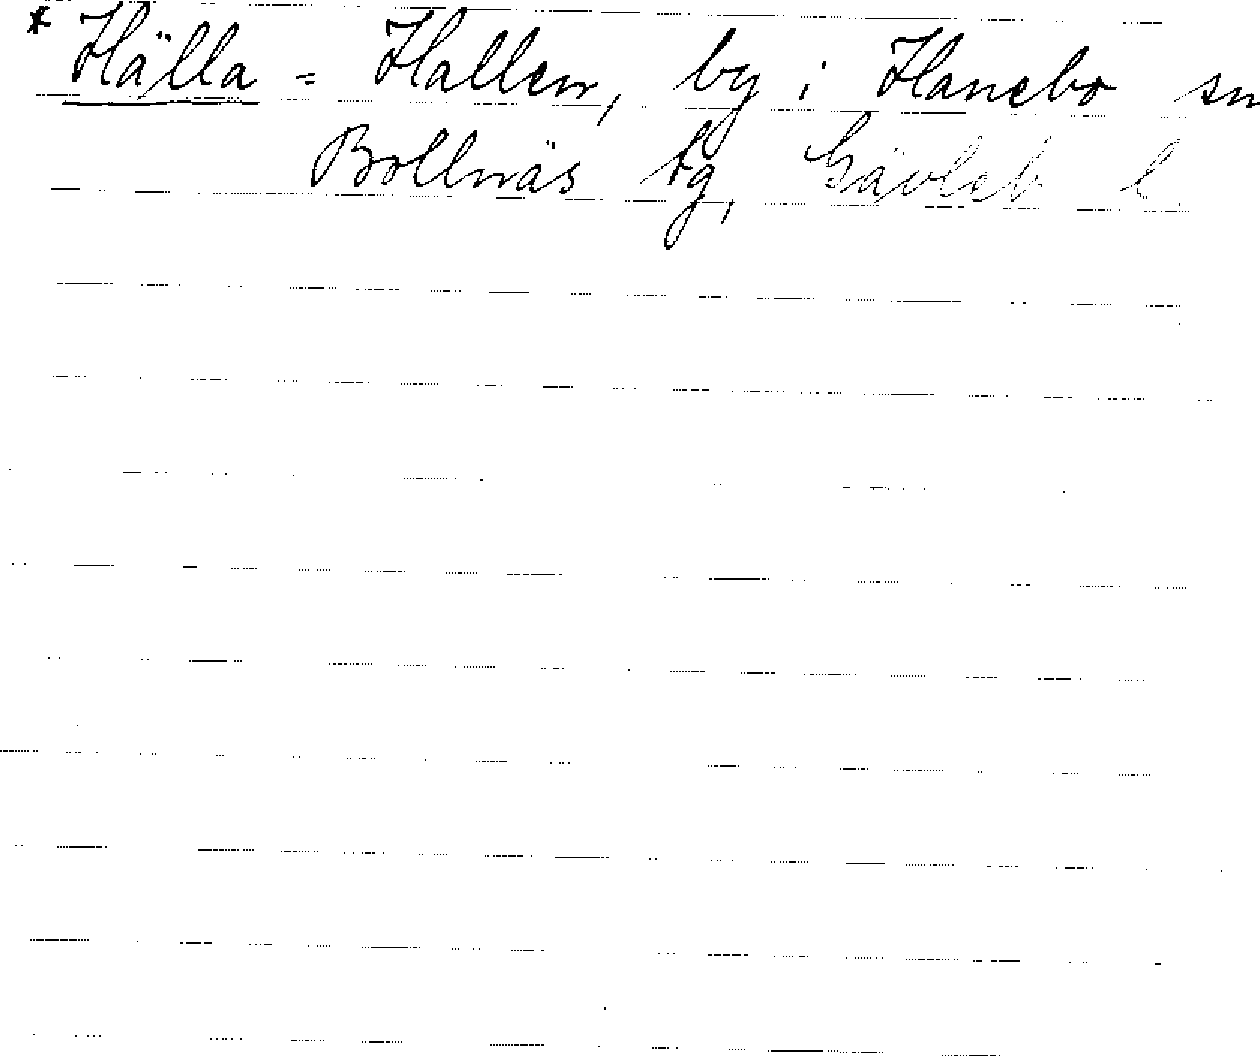 * Hälla = Hallen, by i Hanebo sn
Bollnäs tg, Gävleb l